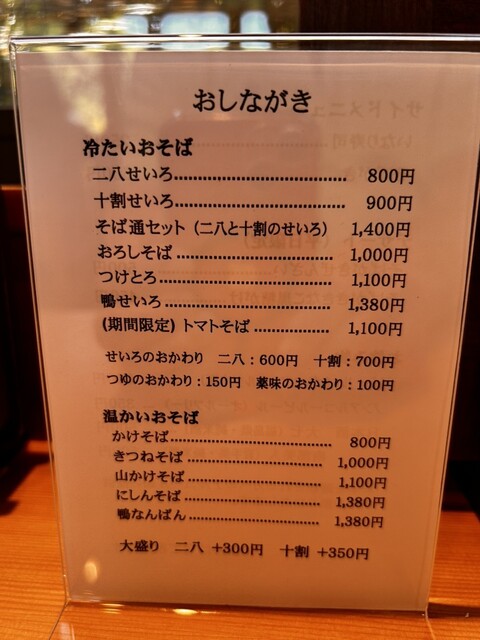 おしながき
冷たいおそば
二八せいろ 800円
十割せいろ 900円
そば通セット（二八と十割のせいろ） 1,400円
おろしそば 1,000円
つけとろ 1,100円
鴨せいろ 1,380円
(期間限定) トマトそば 1,100円
せいろのおかわり 二八：600円 十割：700円
つゆのおかわり：150円 薬味のおかわり：100円
温かいおそば
かけそば 800円
きつねそば 1,000円
山かけそば 1,100円
にしんそば 1,380円
鴨なんばん 1,380円
大盛り 二八 +300円 十割 +350円